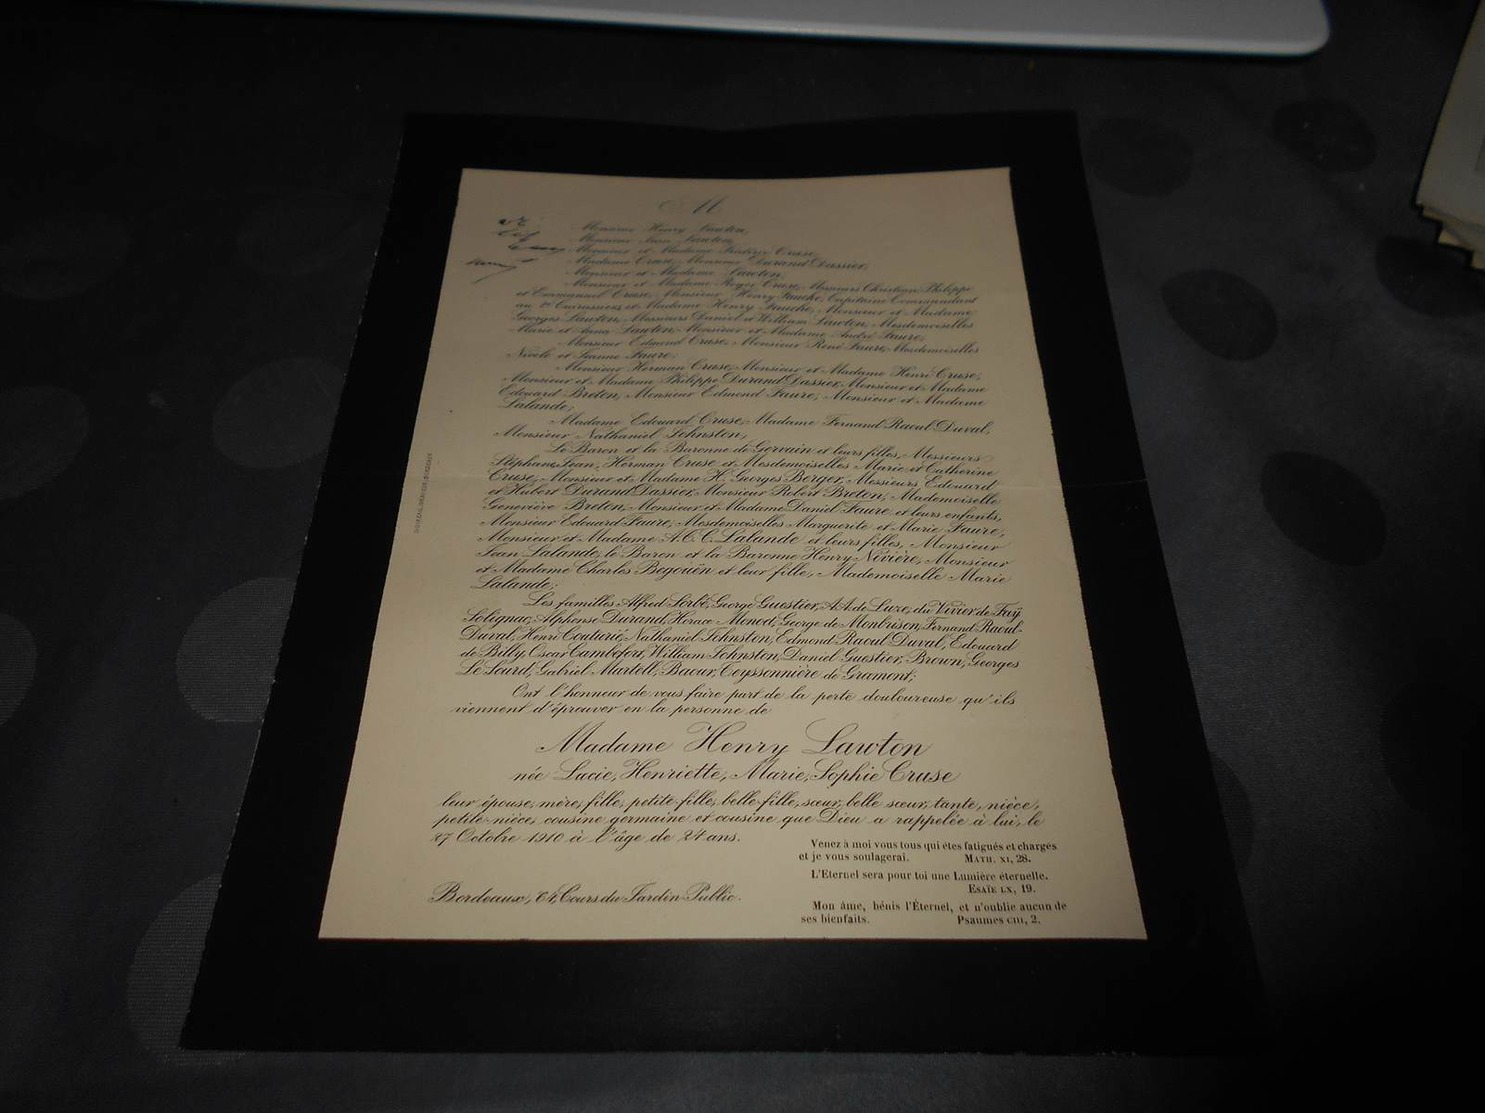 M
Monsieur Henry Lawton,
Monsieur Jean Lawton,
Monsieur et Madame Frédéric Cruse,
Madame Cruse, Monsieur Durand Dassier,
Monsieur et Madame Lawton,
Monsieur et Madame Roger Cruse, Messieurs Christian, Philippe
et Emmanuel Cruse, Monsieur Henry Fauche, Capitaine Commandant
au Cuirassiers, et Madame Henry Fauche, Monsieur et Madame
Georges Lawton, Messieurs Daniel et William Lawton, Mesdemoiselles
Marie et Anna Lawton, Monsieur et Madame André Faure,
Monsieur Edmond Cruse, Monsieur René Faure, Mesdemoiselles
Nicole et Jeanne Faure,
Monsieur Herman Cruse, Monsieur et Madame Henri Cruse,
Monsieur et Madame Philippe Durand Dassier, Monsieur et Madame
Edouard Breton, Monsieur Edmond Faure, Monsieur et Madame
Lalande,
Madame Edouard Cruse, Madame Fernand Raoul Duval,
Monsieur Nathaniel Johnston,
Le Baron et la Baronne de Gervain et leurs filles, Messieurs
Stéphane, Jean, Herman Cruse et Mesdemoiselles Marie et Catherine
Cruse, Monsieur et Madame H. Georges Berger, Messieurs Edouard
et Hubert Durand Dassier, Monsieur Robert Breton, Mademoiselle
Geneviève Breton, Monsieur et Madame Daniel Faure et leurs enfants,
Monsieur Edouard Faure, Mesdemoiselles Marguerite et Marie Faure,
Monsieur et Madame A.C.C. Lalande et leurs filles, Monsieur
Jean Lalande, le Baron et la Baronne Henry Nivière, Monsieur
et Madame Charles Begouën et leur fille, Mademoiselle Marie
Lalande;
Les familles Alfred Sorbé, George Guestier, A.A. de Luze, du Vivier de Faÿ
Solignac, Alphonse Durand, Horace Monod, George de Monbrison, Fernand Raoul-
Duval, Henri Couturié, Nathaniel Johnston, Edmond Raoul Duval, Edouard
de Billy, Oscar Cambefort, William Johnston, Daniel Guestier, Brown, Georges
Le Sourd, Gabriel Martell, Bavar, Teyssonnière de Gramont;
Ont l'honneur de vous faire part de la perte douloureuse qu'ils
viennent d'éprouver en la personne de
Madame Henry Lawton
née Lucie, Henriette, Marie, Sophie Cruse
leur épouse, mère, fille, petite-fille, belle-fille, sœur, belle sœur, tante, nièce,
petite-nièce, cousine germaine et cousine que Dieu a rappelée à lui, le
27 Octobre 1910 à l'âge de 24 ans.
Venez à moi vous tous qui êtes fatigués et chargés
et je vous soulagerai. MATH. XI, 28.
L'Eternel sera pour toi une Lumière éternelle.
ESAÏE LX, 19.
Mon âme, bénis l'Éternel, et n'oublie aucun de
ses bienfaits. Psaumes CIII, 2.
Bordeaux, 64, Cours du Jardin-Public.